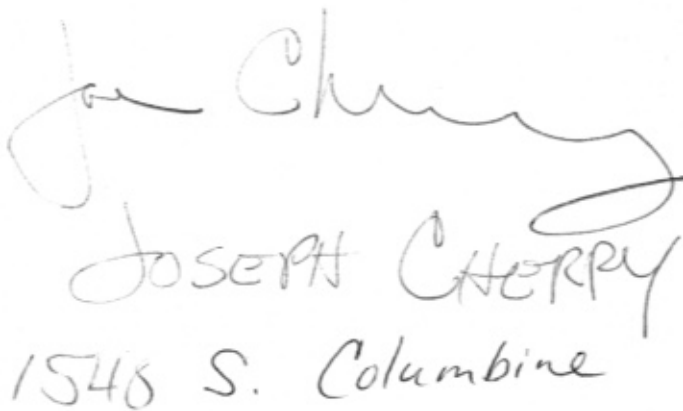 Joe Cherry
JOSEPH CHERRY
1548 S. Columbine